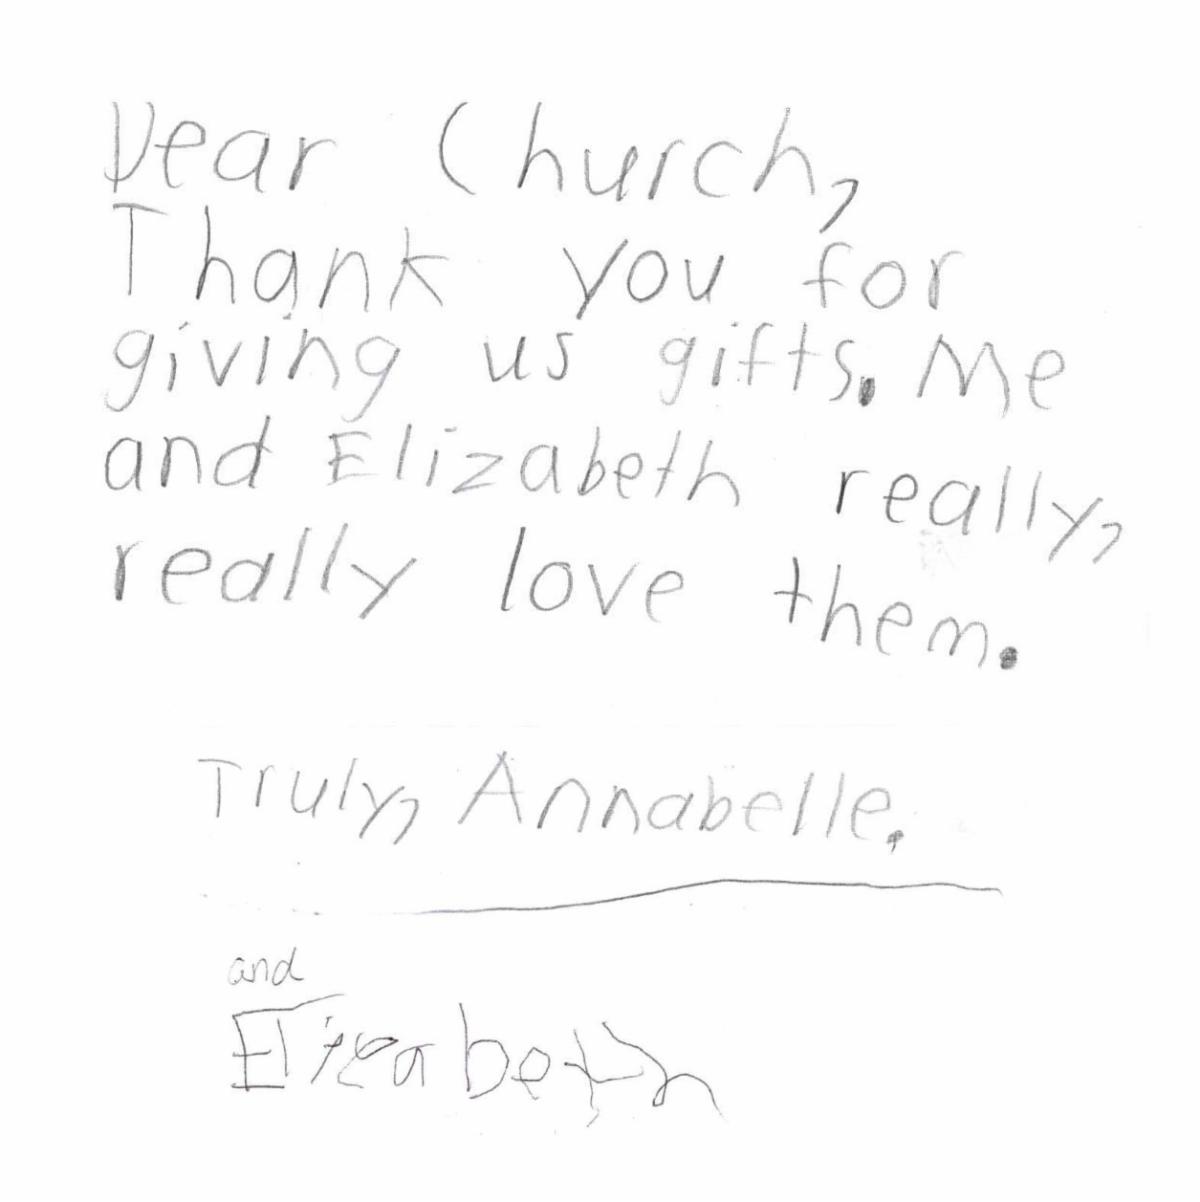 Dear Church,
Thank you for
giving us gifts. Me
and Elizabeth really,
really love them.
Truly, Annabelle.
and
Elizabeth